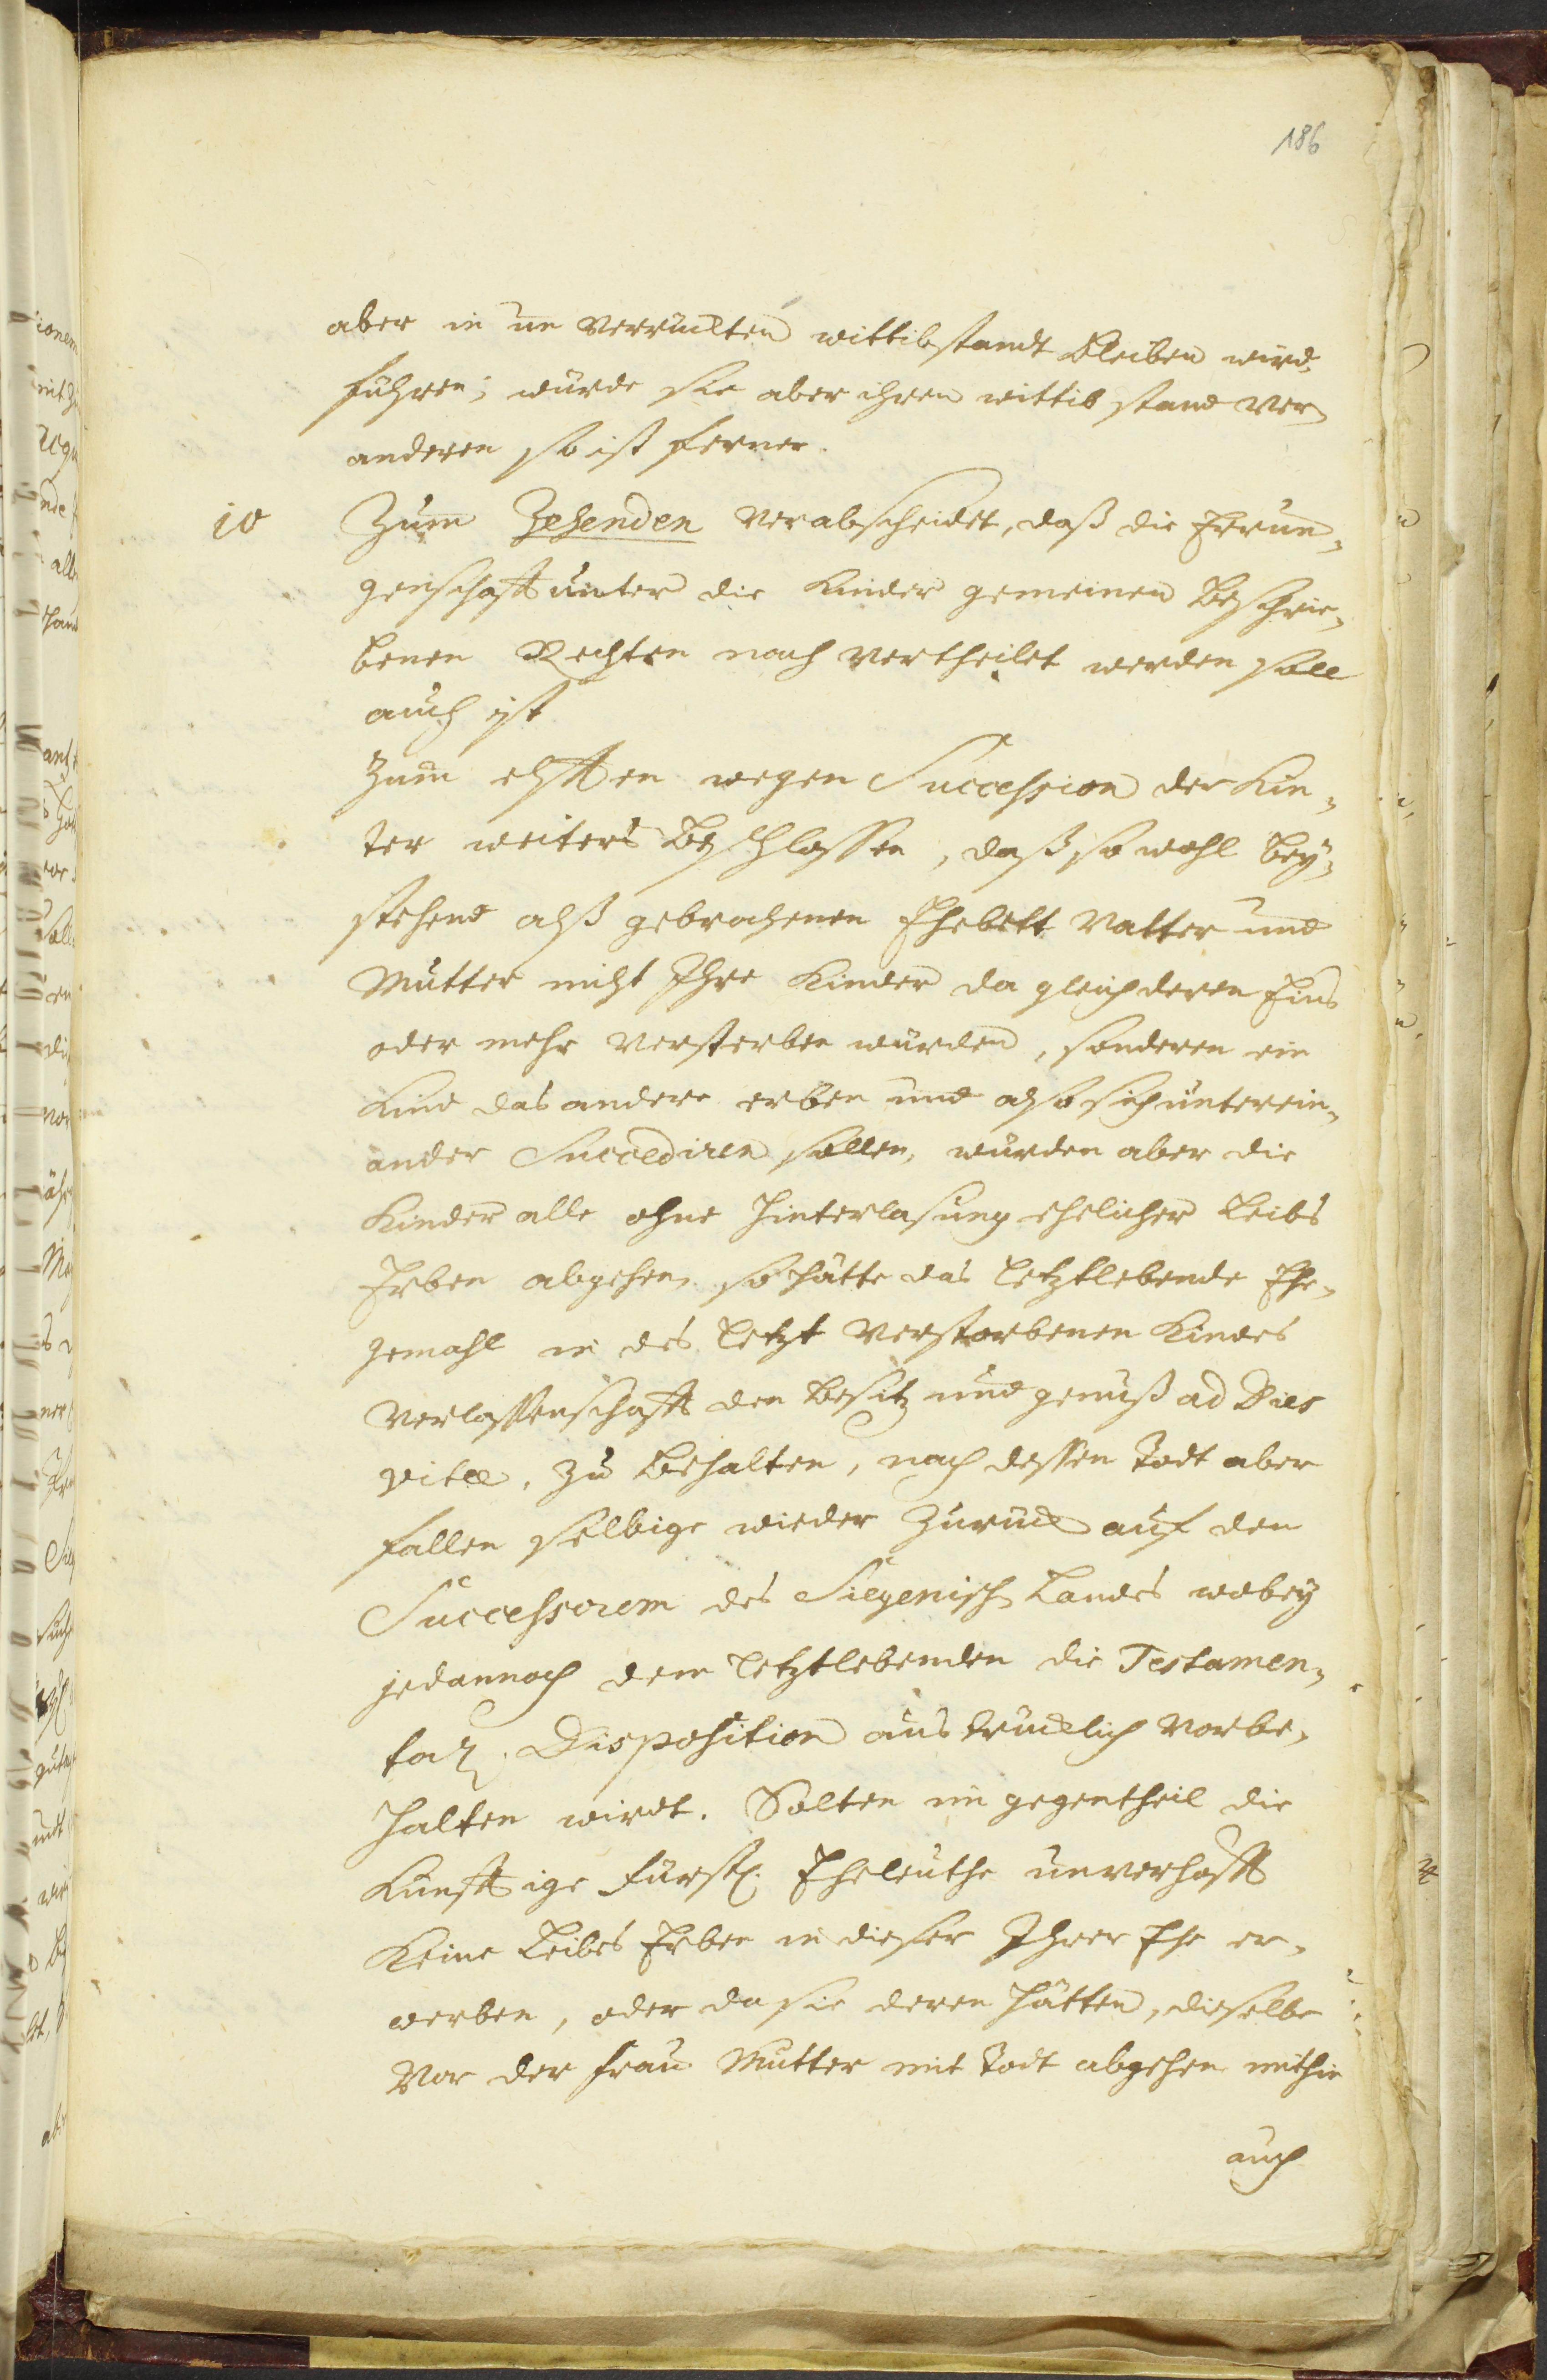 186
aber in un verruckten wittibstandt bleiben wird,
führen; würde sie aber ihren wittib stand ver
anderen so ist ferner.
10 Zum Zehenden verabscheidet, daß die Errun„
genschafft unter die Kinder gemeinen beschrie„
benen Rechten nach vertheilet werden solle
auch ist
Zum elfften wegen Succession der Kin„
der weiters beschlossen, daß so wohl bey„
stehend alß gebrochenen Ehebett Vatter und
Mutter nicht Ihre Kinder da gleich deren Eins
oder mehr versterben würden, sonderen ein
Kind das andere erben und also sich unterein„
ander Succediren sollen, würden aber die
Kinder alle ohne hinterlasung ehelicher Leibs
Erben abgehen, so hätte das letztlebende Ehe„
gemahl in des letzt verstorbenen Kindes
verlassenschafft den besitz und genuß ad Dies
vitæ, zu behalten, nach dessen todt aber
fallen selbige wieder zuruck auf den
Successorem des Siegenisch Landes wobey
jedannoch dem letztlebenden die Testamen„
tar. Disposition austrucklich vorbe„
halten wirdt. Solten im gegentheil die
Kunfftige fürstl. Eheleuthe unverhofft
Keine Leibes Erben in dieser Ihrer Ehe er„
werben, oder da sie deren hätten, dieselbe
vor der frau Mutter mit todt abgehen mithin
auch